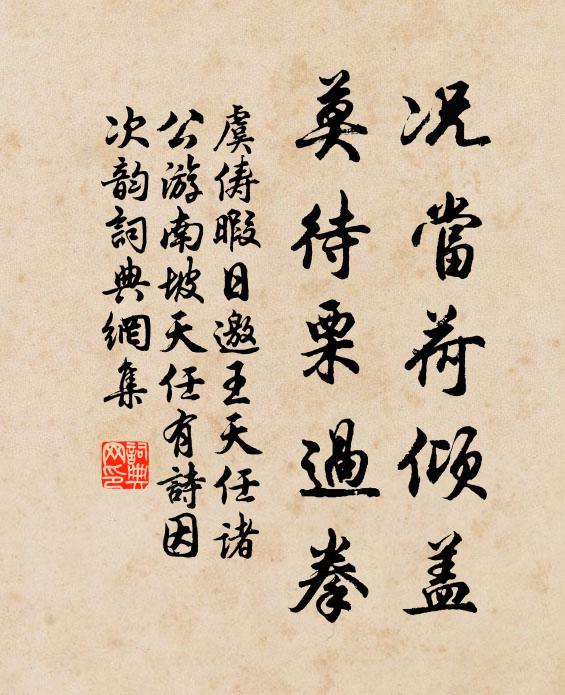 况當荷傾盖
莫待栗過拳
虞俦暇日邀王天任诸
公游南坡天任有詩因
次韵詞典網集
詞典网印